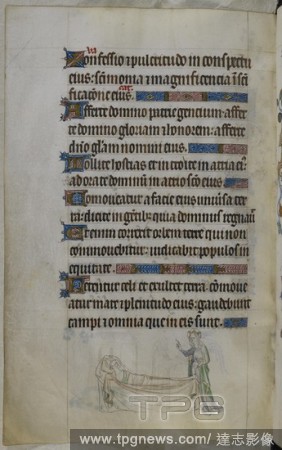 Confessio ⁊ pulcritudo in conspectu
eius: sc̄imonia ⁊ magnificencia ī sc̄i
ficacōne eius.
Afferte domino patrie gencium: affer
te domino gloriam ⁊ honorem: afferte
dn̄o gl̄iam nomini eius.
Tollite hostias et introite in atria ei᷒:
adorate dominū in atrio sc̄o eius
Commoueatur a facie eius uniūsa ter
ra: dicite in gētib; quia dominus regnau̅
Etenim correxit orbem terre qui non
commouebitur: iudicabit populos in
equitate.
Letentur celi et exultet terra: cōmoue
atur mare ⁊ plenitudo eius: gaudebunt
campi ⁊ omnia que in eis sunt.
TPG
www.tpgnews.com/ 達志影像